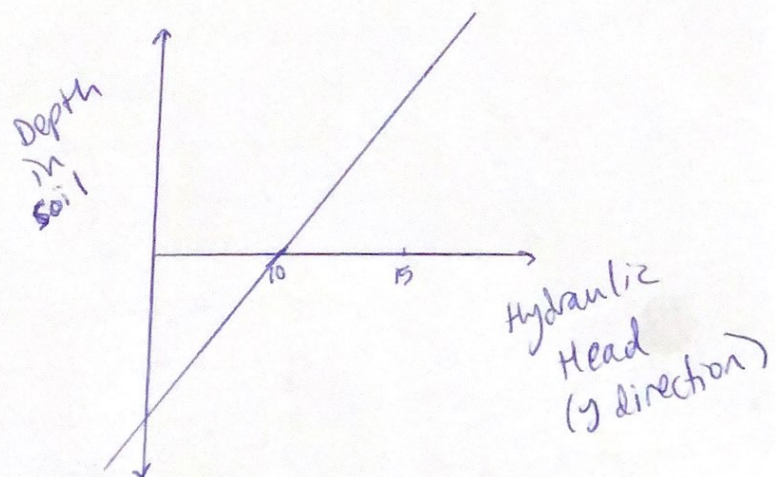 Depth
in
soil
10
15
Hydraulic
Head
(y direction)